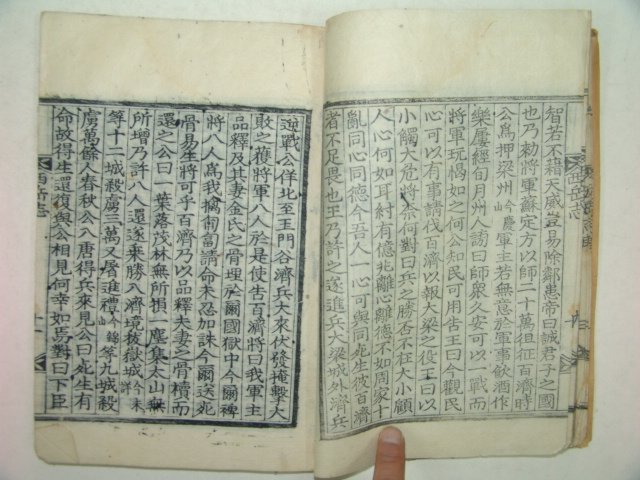 智若不藉天威豈易除鄰患帝曰誠君子之國
也乃勅將軍蘇定方以師二十萬徂征百濟時
公爲押梁州今慶山軍主若無意於軍事飮酒作
樂屢經旬月州人謗曰師衆久安可以一戰而
將軍玩愒如之何公知民可用告王曰今觀民
心可以有事請伐百濟以報大梁之役王曰以
小觸大危將奈何對曰兵之勝否不在大小顧
人心何如耳紂有億兆離心離德不如周家十
亂同心同德今吾人一心可與同死生彼百濟
者不足畏也王乃許之遂進兵大梁城外濟兵
逆戰公佯北至玉門谷濟兵大來伏發掩擊大
敗之獲將軍八人於是使告百濟將曰我軍主
品釋及其妻金氏之骨埋於爾國獄中今爾裨
將八人爲我擒匍匐請命未忍加誅今爾送死
骨易生將可乎百濟乃以品釋夫妻之骨櫝而
還之公曰一葉落茂林無所損一塵集太山無
所增乃許八人還遂乘勝入濟境拔嶽城今未詳
等十二城殺虜三萬又屠進禮今錦山等九城殺
虜萬餘人春秋公入唐得兵來見公曰死生有
命故得生還復與公相見何幸如焉對曰下臣
西岳志